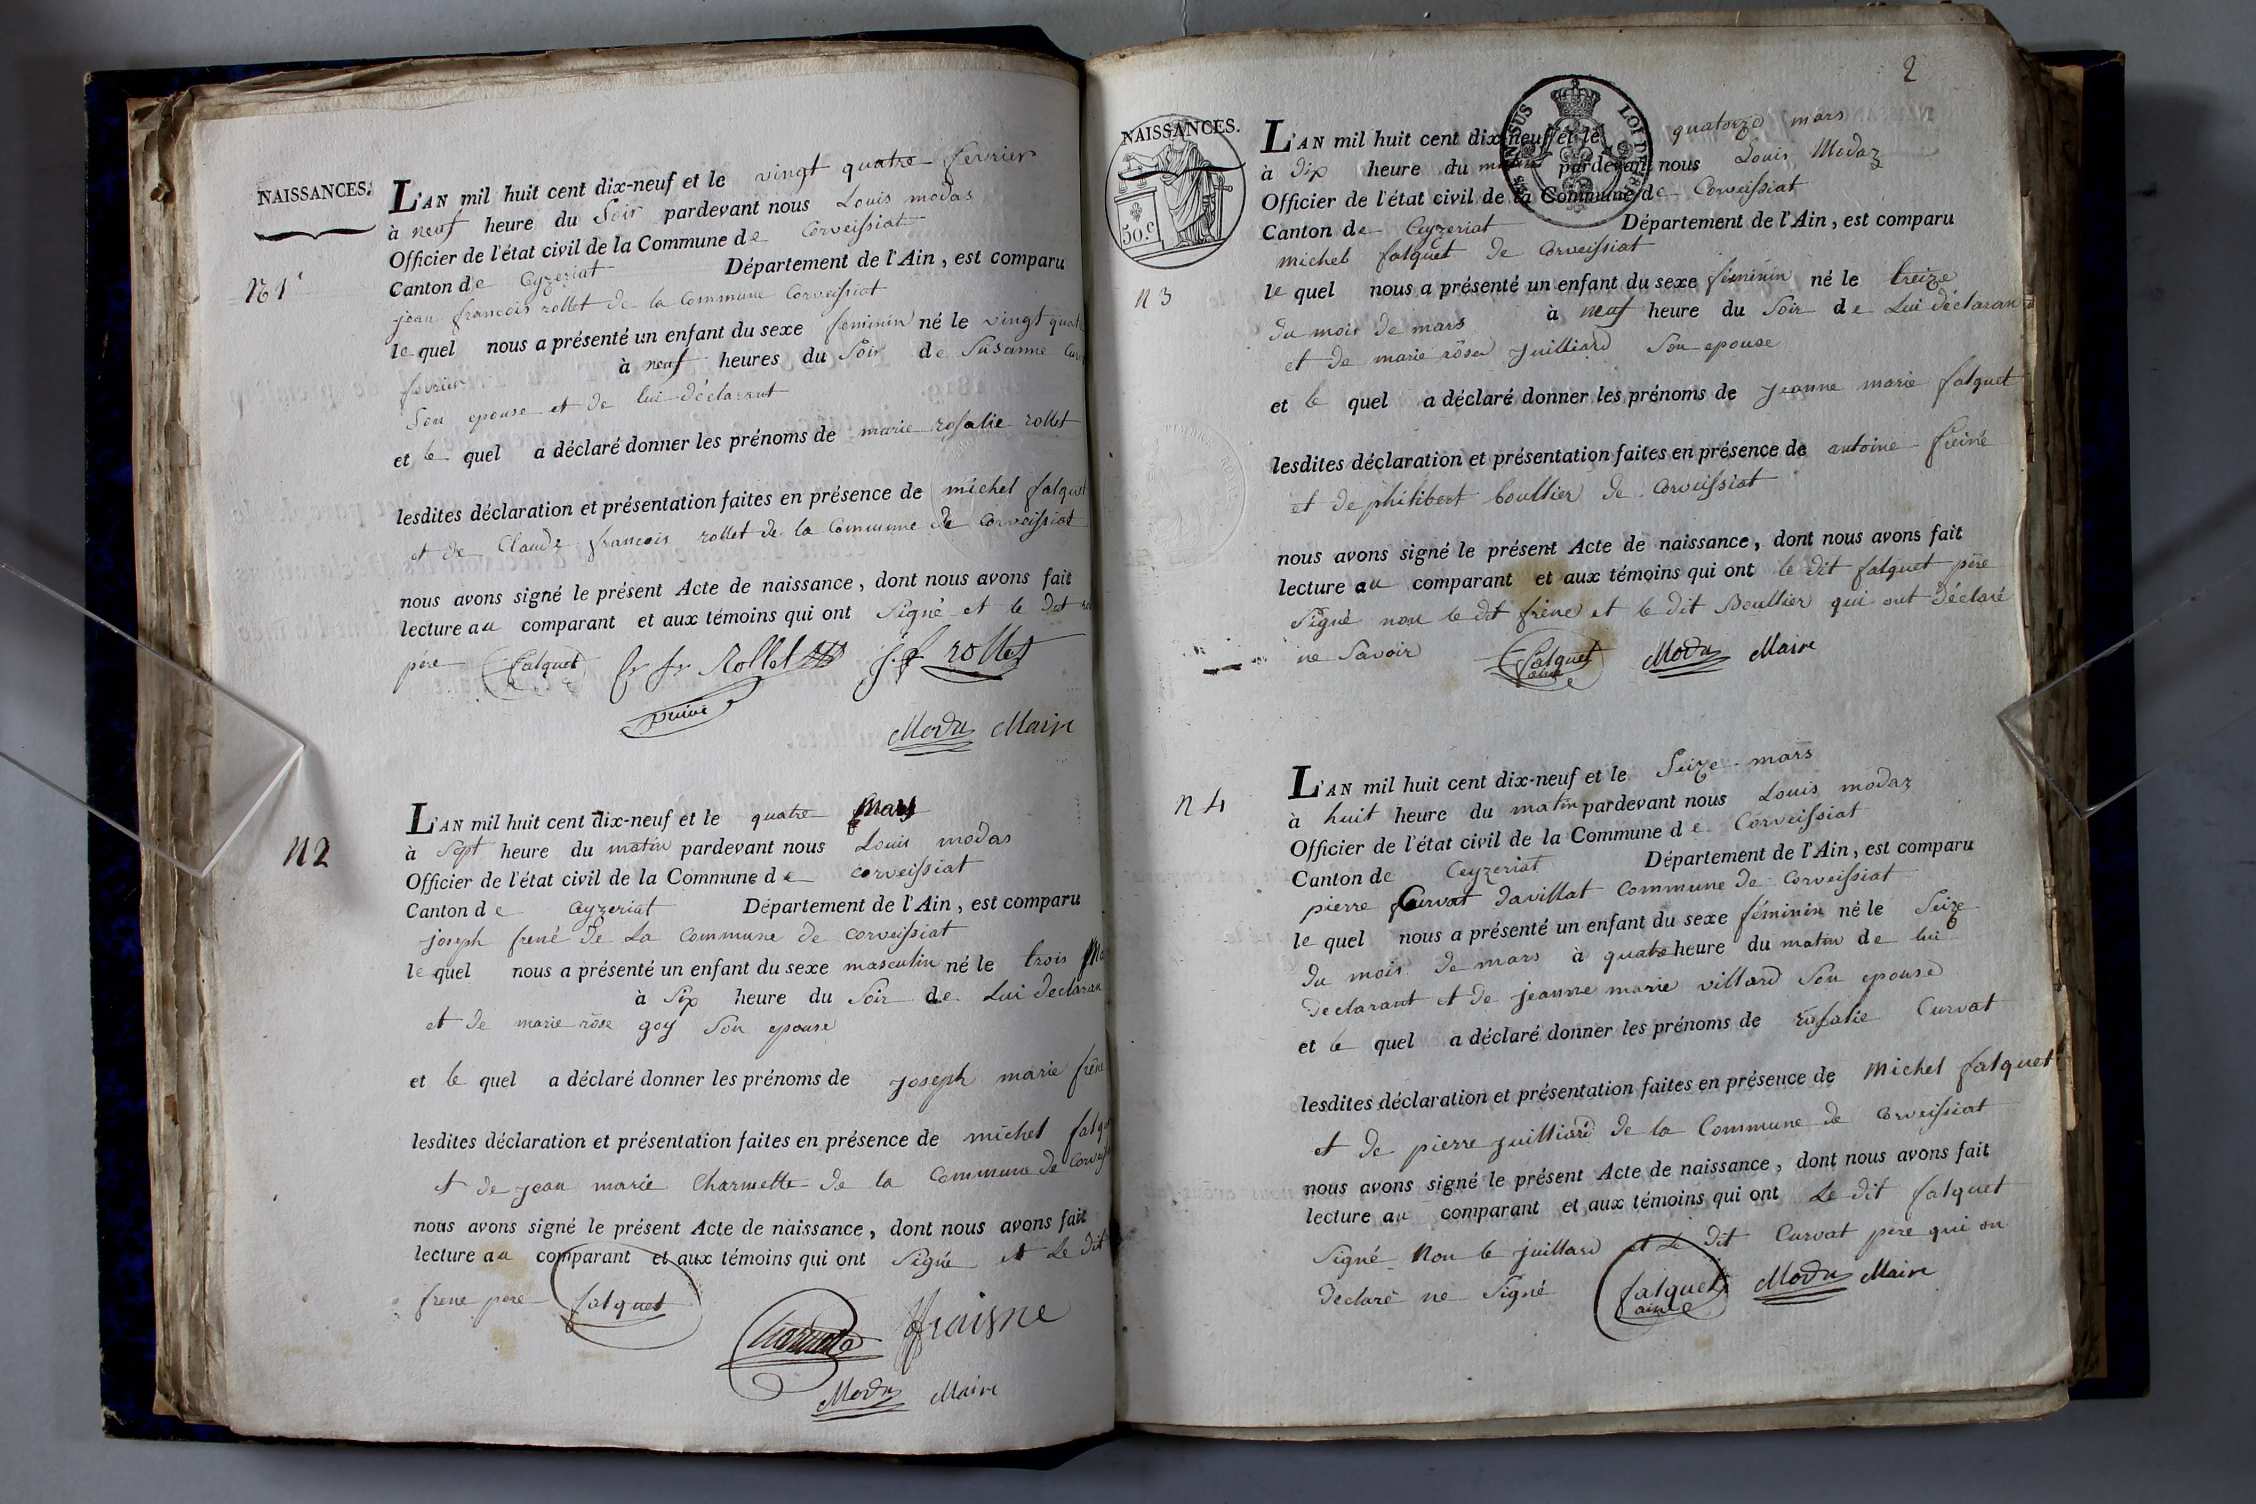 NAISSANCES.
N 1
L'AN mil huit cent dix-neuf et le vingt quatre fevrier
à neuf heure du Soir pardevant nous Louis modas
Officier de l'état civil de la Commune de Corveissiat
Canton de Cyzeriat Département de l'Ain, est comparu
jean francois rollet de la Commune Corveissiat
le quel nous a présenté un enfant du sexe feminin né le vingt quat
fevrier à neuf heures du Soir de Susanne
Son epouse et de lui déclarant
et le quel a déclaré donner les prénoms de marie rosalie rollet
lesdites déclaration et présentation faites en présence de michel falquet
et de Claude francois rollet de la Commune de Corveissiat
nous avons signé le présent Acte de naissance, dont nous avons fait
lecture au comparant et aux témoins qui ont Signé et le dit
père falquet Rollet j.f rollet
Modas Maire
N 2
L'AN mil huit cent dix-neuf et le quatre Mars
à Sept heure du matin pardevant nous Louis modas
Officier de l'état civil de la Commune de corveissiat
Canton de Cyzeriat Département de l'Ain, est comparu
joseph frené de La Commune de corveissiat
le quel nous a présenté un enfant du sexe masculin né le trois
à Six heure du Soir de Lui declaran
et de marie rôse goy Son epouse
et le quel a déclaré donner les prénoms de joseph marie frêne
lesdites déclaration et présentation faites en présence de michel falq
et de jean marie Charmette de la Commune de Corveiss
nous avons signé le présent Acte de naissance, dont nous avons fait
lecture au comparant et aux témoins qui ont Signé et Le dit
frene pere falquet
Charmette ffraisne
Modas Maire
2
NAISSANCES.
50.c
LOI DE
N 3
L'AN mil huit cent dix-neuf et le quatorze mars
à dix heure du matin pardevant nous Louis Modaz
Officier de l'état civil de la Commune de Corveissiat
Canton de Ceyzeriat Département de l'Ain, est comparu
michel falquet de Corveissiat
le quel nous a présenté un enfant du sexe féminin né le treize
du mois de mars à neuf heure du Soir de Lui déclarant
et de marie rôse juilliard Son epouse
et le quel a déclaré donner les prénoms de jeanne marie falquet
lesdites déclaration et présentation faites en présence de antoine frêne
et de philibert boullier de Corveissiat
nous avons signé le présent Acte de naissance, dont nous avons fait
lecture au comparant et aux témoins qui ont le dit falquet père
Signé non le dit frêne et le dit Boullier qui ont déclaré
ne Savoir falquet ainé Modas Maire
N 4
L'AN mil huit cent dix-neuf et le Seize mars
à huit heure du matin pardevant nous Louis modaz
Officier de l'état civil de la Commune de Corveissiat
Canton de Ceyzeriat Département de l'Ain, est comparu
pierre Curvat davillat Commune de Corveissiat
le quel nous a présenté un enfant du sexe féminin né le Seize
du mois de mars à quatre heure du matin de lui
déclarant et de jeanne marie villard Son epouse
et le quel a déclaré donner les prénoms de rosalie Curvat
lesdites déclaration et présentation faites en présence de Michel falquet
et de pierre juilliard de la Commune de Corveissiat
nous avons signé le présent Acte de naissance, dont nous avons fait
lecture au comparant et aux témoins qui ont Le dit falquet
Signé Non le juillard et Le dit Curvat pere qui on
declaré ne Signé falquet ainé Modas Maire